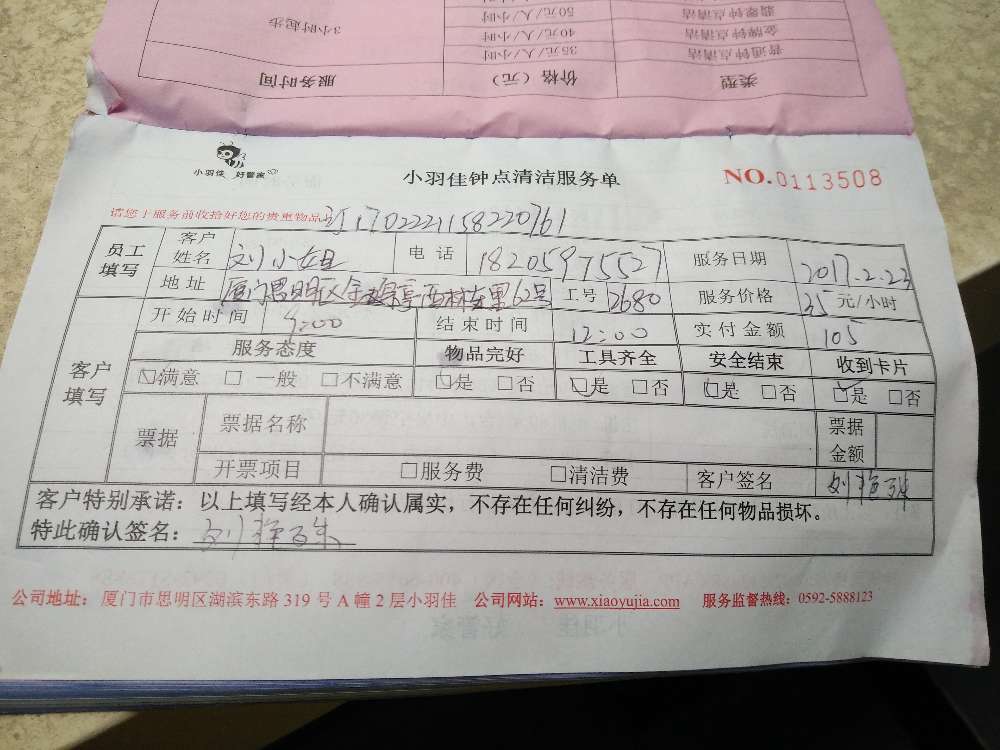 3小时起步
翡翠钟点清洁 50元/人/小时
金牌钟点清洁 40元/人/小时
普通钟点清洁 35元/人/小时
类型 价格（元） 服务时间
小羽佳 好管家
小羽佳钟点清洁服务单
NO.0113508
请您于服务前收拾好您的贵重物品
1702221158220761
员工填写 客户姓名 刘小姐 电话 18205975527 服务日期 2017.2.22
地址 厦门思明区金 西林东里62号 工号 2680 服务价格 35元/小时
客户填写 开始时间 9:00 结束时间 12:00 实付金额 105
服务态度 物品完好 工具齐全 安全结束 收到卡片
☑满意 □一般 □不满意 ☑是 □否 ☑是 □否 ☑是 □否 ☑是 □否
票据 票据名称 票据金额
开票项目 □服务费 □清洁费 客户签名 刘艳珠
客户特别承诺：以上填写经本人确认属实，不存在任何纠纷，不存在任何物品损坏。
特此确认签名：刘艳珠
公司地址：厦门市思明区湖滨东路 319 号 A 幢 2 层小羽佳 公司网站：www.xiaoyujia.com 服务监督热线：0592-5888123